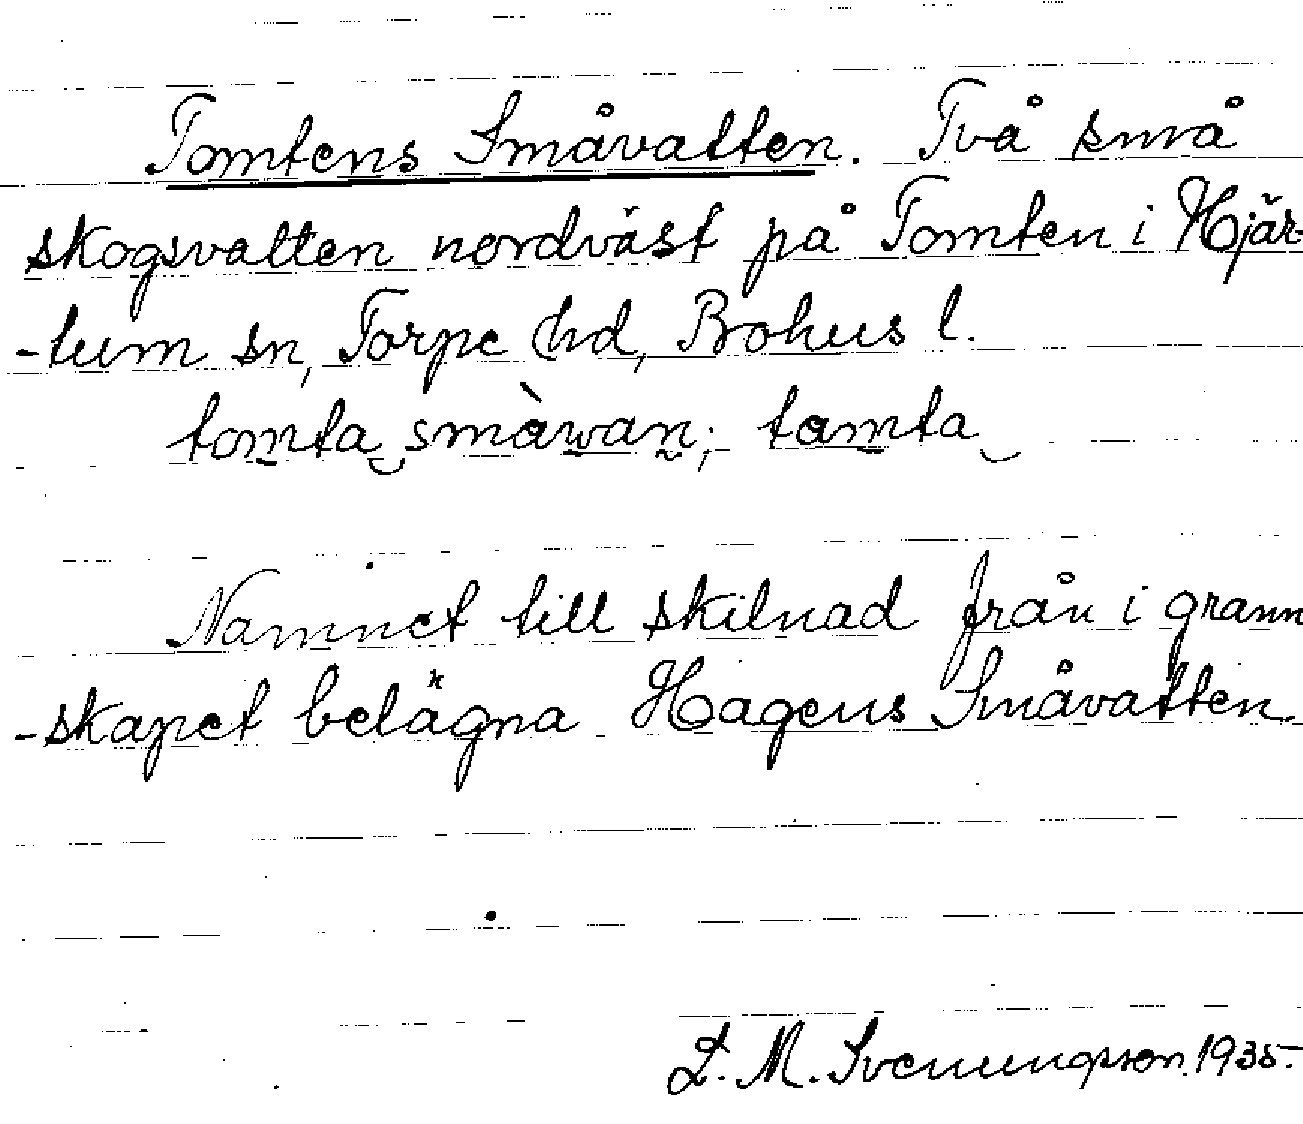 Tomtens Småvatten. Två små
skogsvatten nordväst på Tomten i Hjär-
-tum sn, Torpe hd, Bohus l.
tomta‿småwan; tamta‿
Namnet till skilnad från i grann
-skapet belägna Hagens Småvatten.
L. M. Svenungsson 1935.